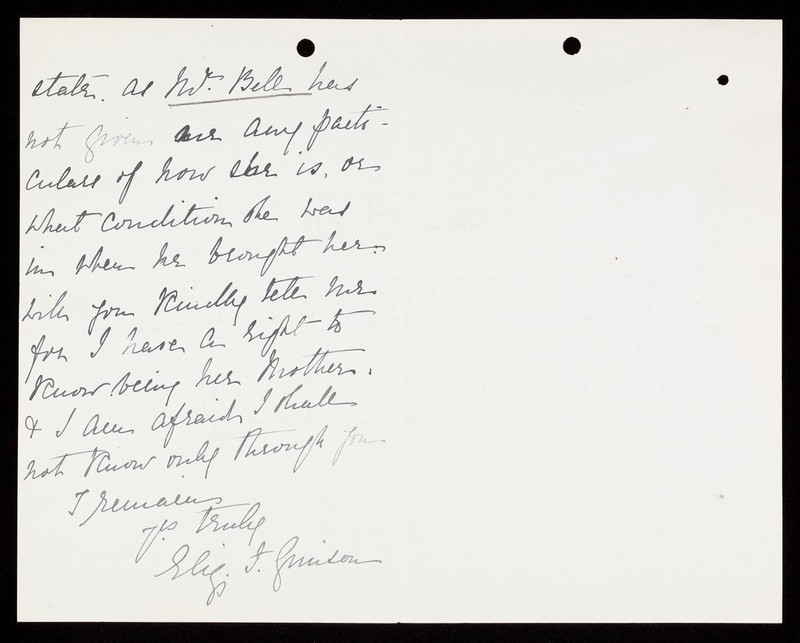 state. as Mr. Bell has
not given me any parti-
culars of how she is, or
what condition she was
in when he brought her.
will you kindly tell me
for I have a right to
know being her Mother.
& I am afraid I shall
not know only through you
I remain
yrs truly
Eliz. F. Grinson